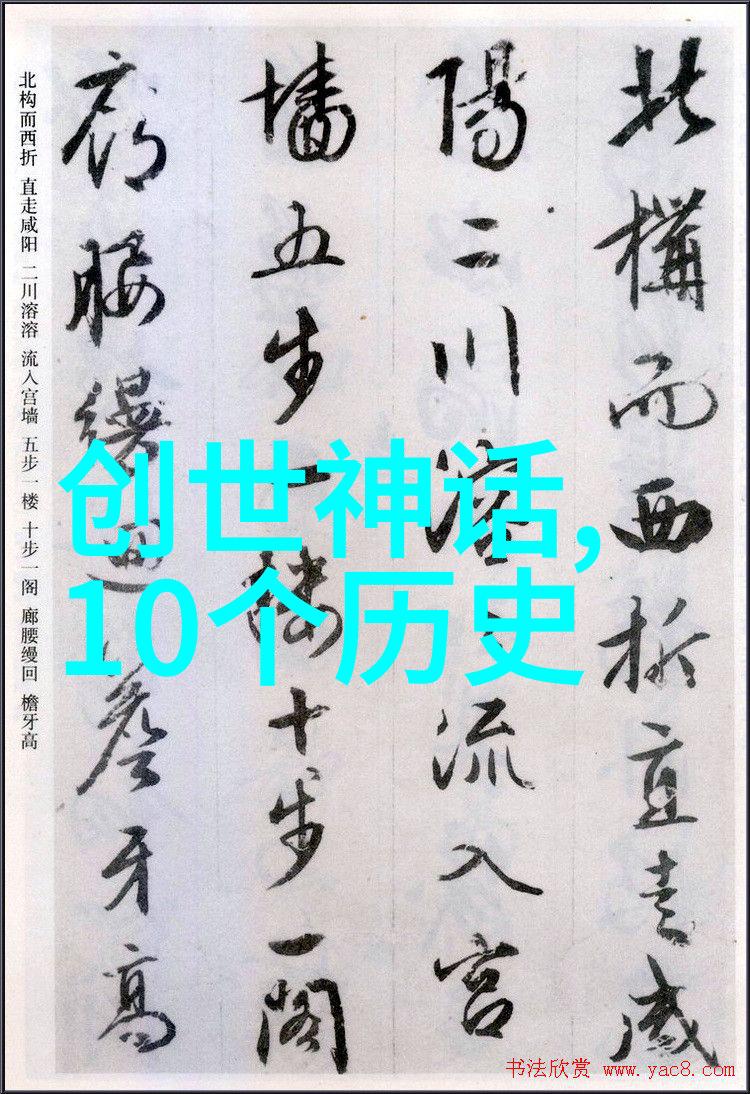 北構而西折直走咸
陽二川溶〻流入宮
墻五步一樓十步一閣
廊腰縵迴簷牙高
北构而西折 直走咸阳 二川溶溶 流入宫墙 五步一楼 十步一阁 廊腰缦回 檐牙高
创世神话,
10个历史
书法欣赏 www.yac8.com